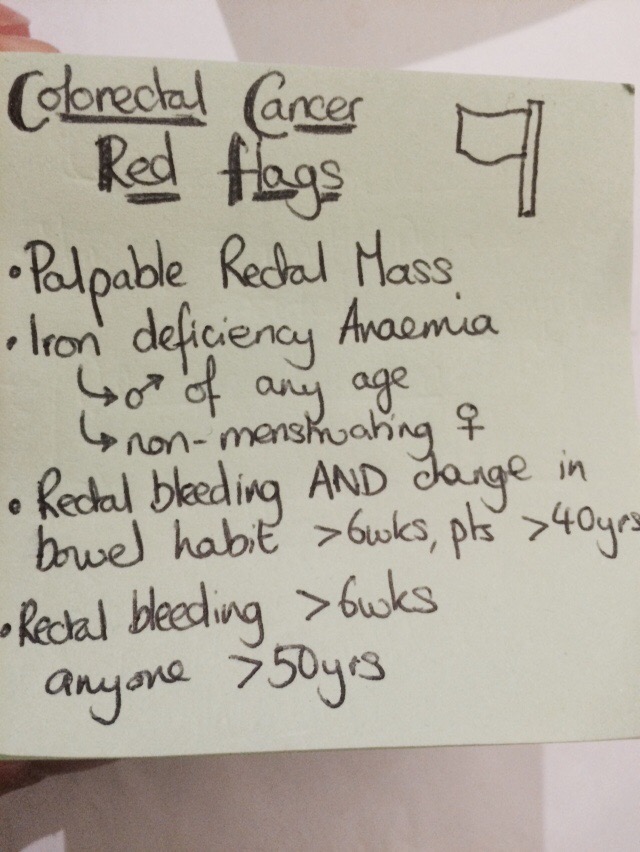 Colorectal Cancer
Red flags
• Palpable Rectal Mass
• Iron deficiency Anaemia
↳ ♂ of any age
↳ non-menstruating ♀
• Rectal bleeding AND change in
bowel habit >6wks, pts >40yrs
• Rectal bleeding >6wks
anyone >50yrs